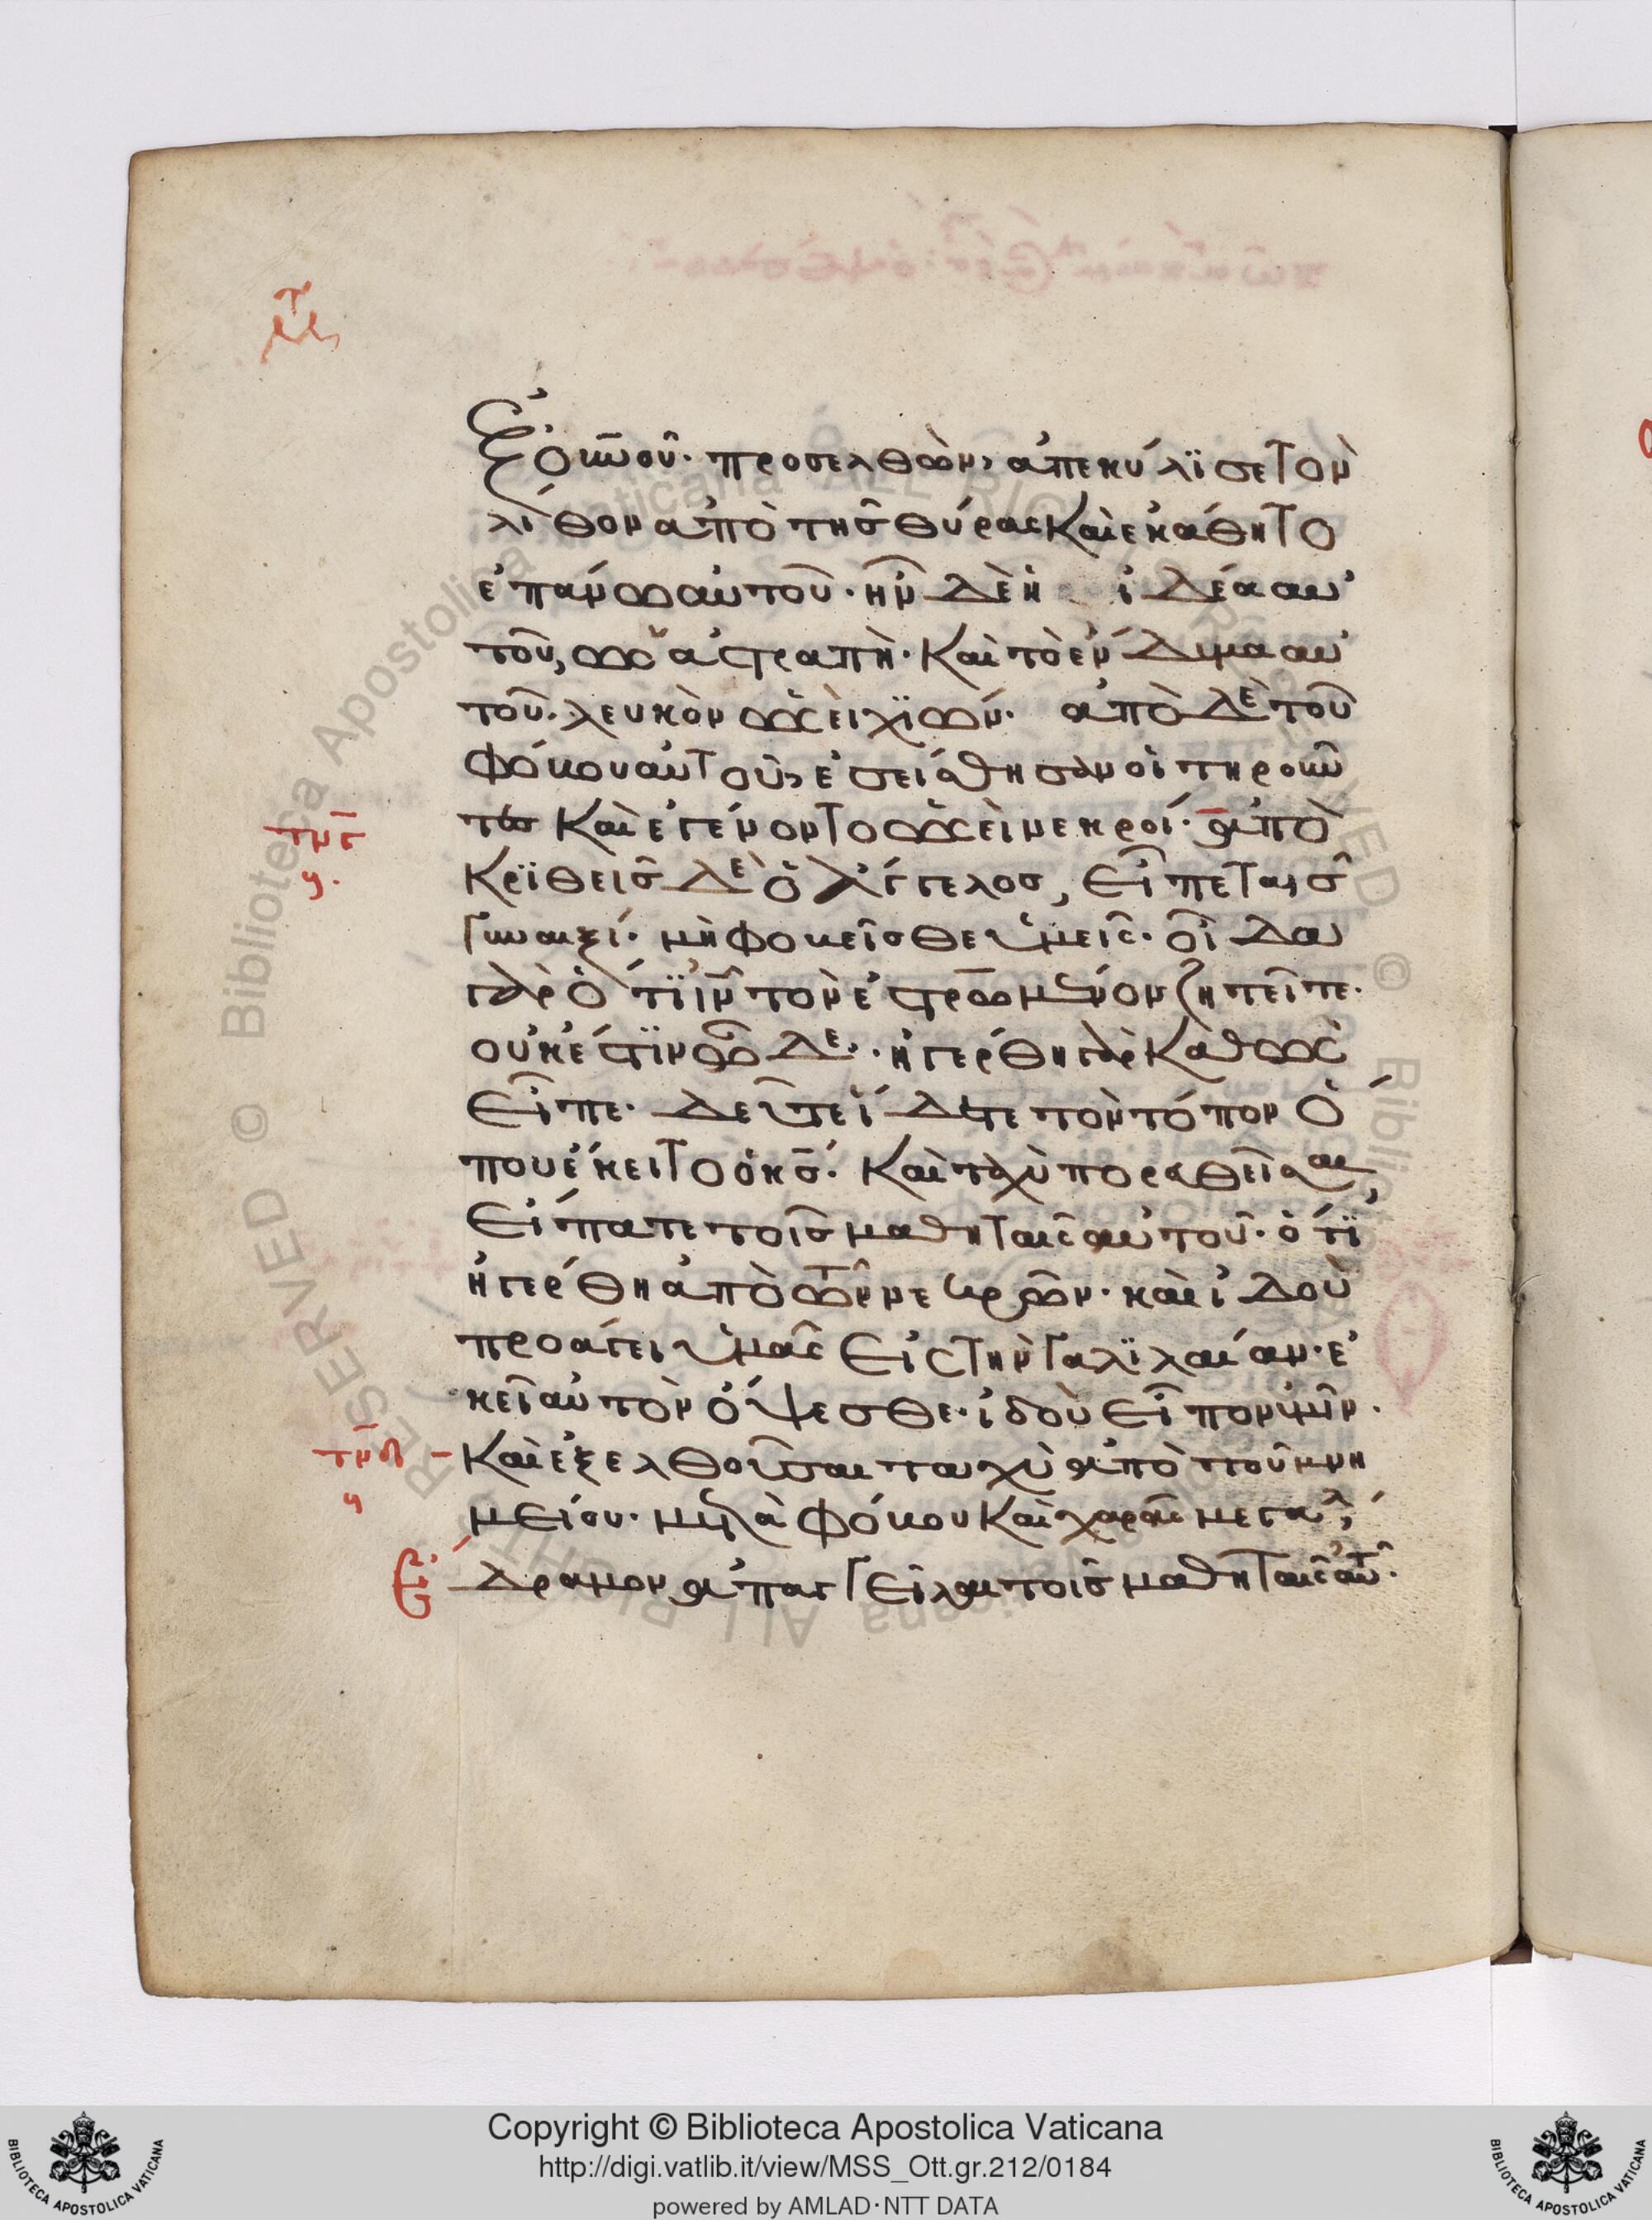 ἐξ οὐνοῦ· προσελθὼν, ἀπεκύλϊσε τὸν
λίθον ἀπὸ τῆς θύρας καὶ ἐκάθητο
ἐπάνω αὐτοῦ· ἦν δὲ ἡ ἰδέα αὐ
τοῦ, ὡς ἀστραπὴ· καὶ τὸ ἔνδιμα αὐ
τοῦ· λευκὸν ὡσεὶ χϊών· ἀπὸ δὲ τοῦ
φόβου αὐτοῦ, ἐσείσθησαν οἱ τηροῦν
τες καὶ ἐγένοντο ὡσεὶ νεκροί· ἀπο
κρϊθεὶς δὲ ὁ ἄγγελος, εἶπε ταῖς
γυναιξί· μὴ φοβεῖσθε ὑμεῖς· οἶδα
γὰρ ὅτϊ ιν τὸν ἐστρωμένον ζητεῖτε·
οὐκ ἔστϊν ὧδε· ἠγέρθη γὰρ καθὼς
εἶπε· δεῦτε ἴδετε τὸν τόπον ὅ
που ἔκειτο ὁ κς· καὶ ταχὺ πορευθεῖσαι
εἴπατε τοῖς μαθηταῖς αὐτοῦ· ὅτϊ
ἠγέρθη ἀπὸ τῶν νεκρῶν· καὶ ἰδοὺ
προάγει ὑμᾶς εἰς τὴν γαλϊλαίαν· ἐ
κεῖ αὐτὸν ὄψεσθε· ἰδοὺ εἶπον ὑμῖν·
τνδ
καὶ ἐξελθοῦσαι ταχὺ ἀπὸ τοῦ μνη
μείου· μετὰ φόβου καὶ χαρᾶς μεγάλ,
ἔδραμον ἀπαγγεῖλαι τοῖς μαθηταῖς αὐτ·
Copyright © Biblioteca Apostolica Vaticana
http://digi.vatlib.it/view/MSS_Ott.gr.212/0184
powered by AMLAD·NTT DATA